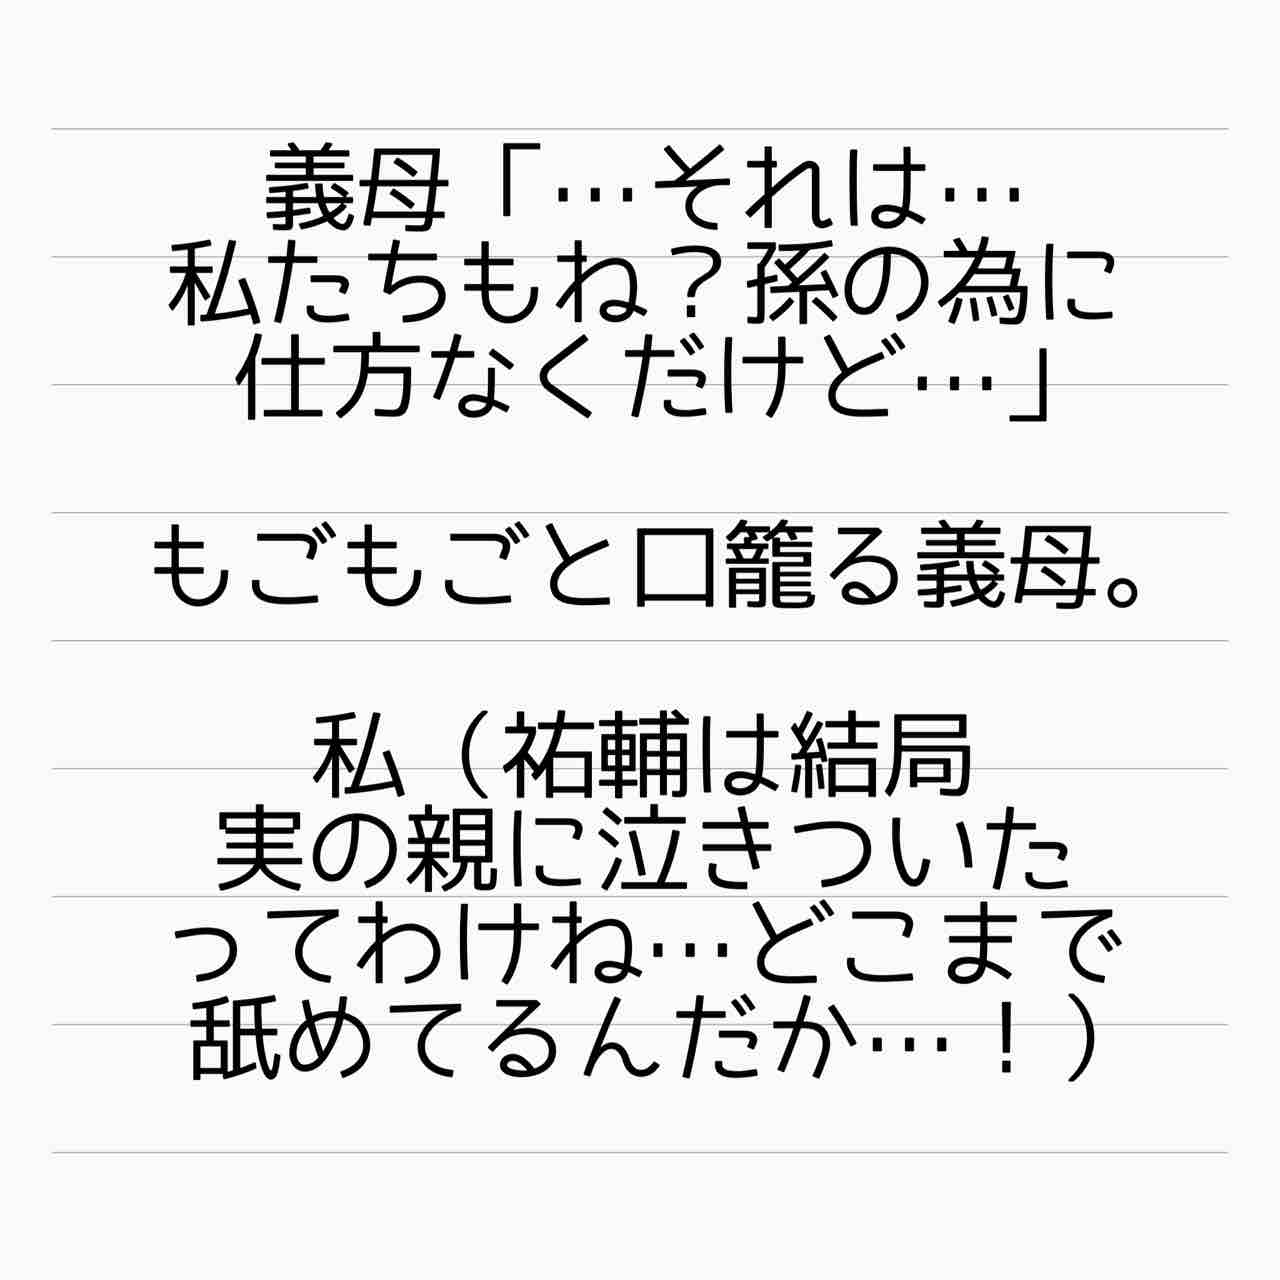 義母「…それは…
私たちもね？孫の為に
仕方なくだけど…」
もごもごと口籠る義母。
私（祐輔は結局
実の親に泣きついた
ってわけね…どこまで
舐めてるんだか…！）